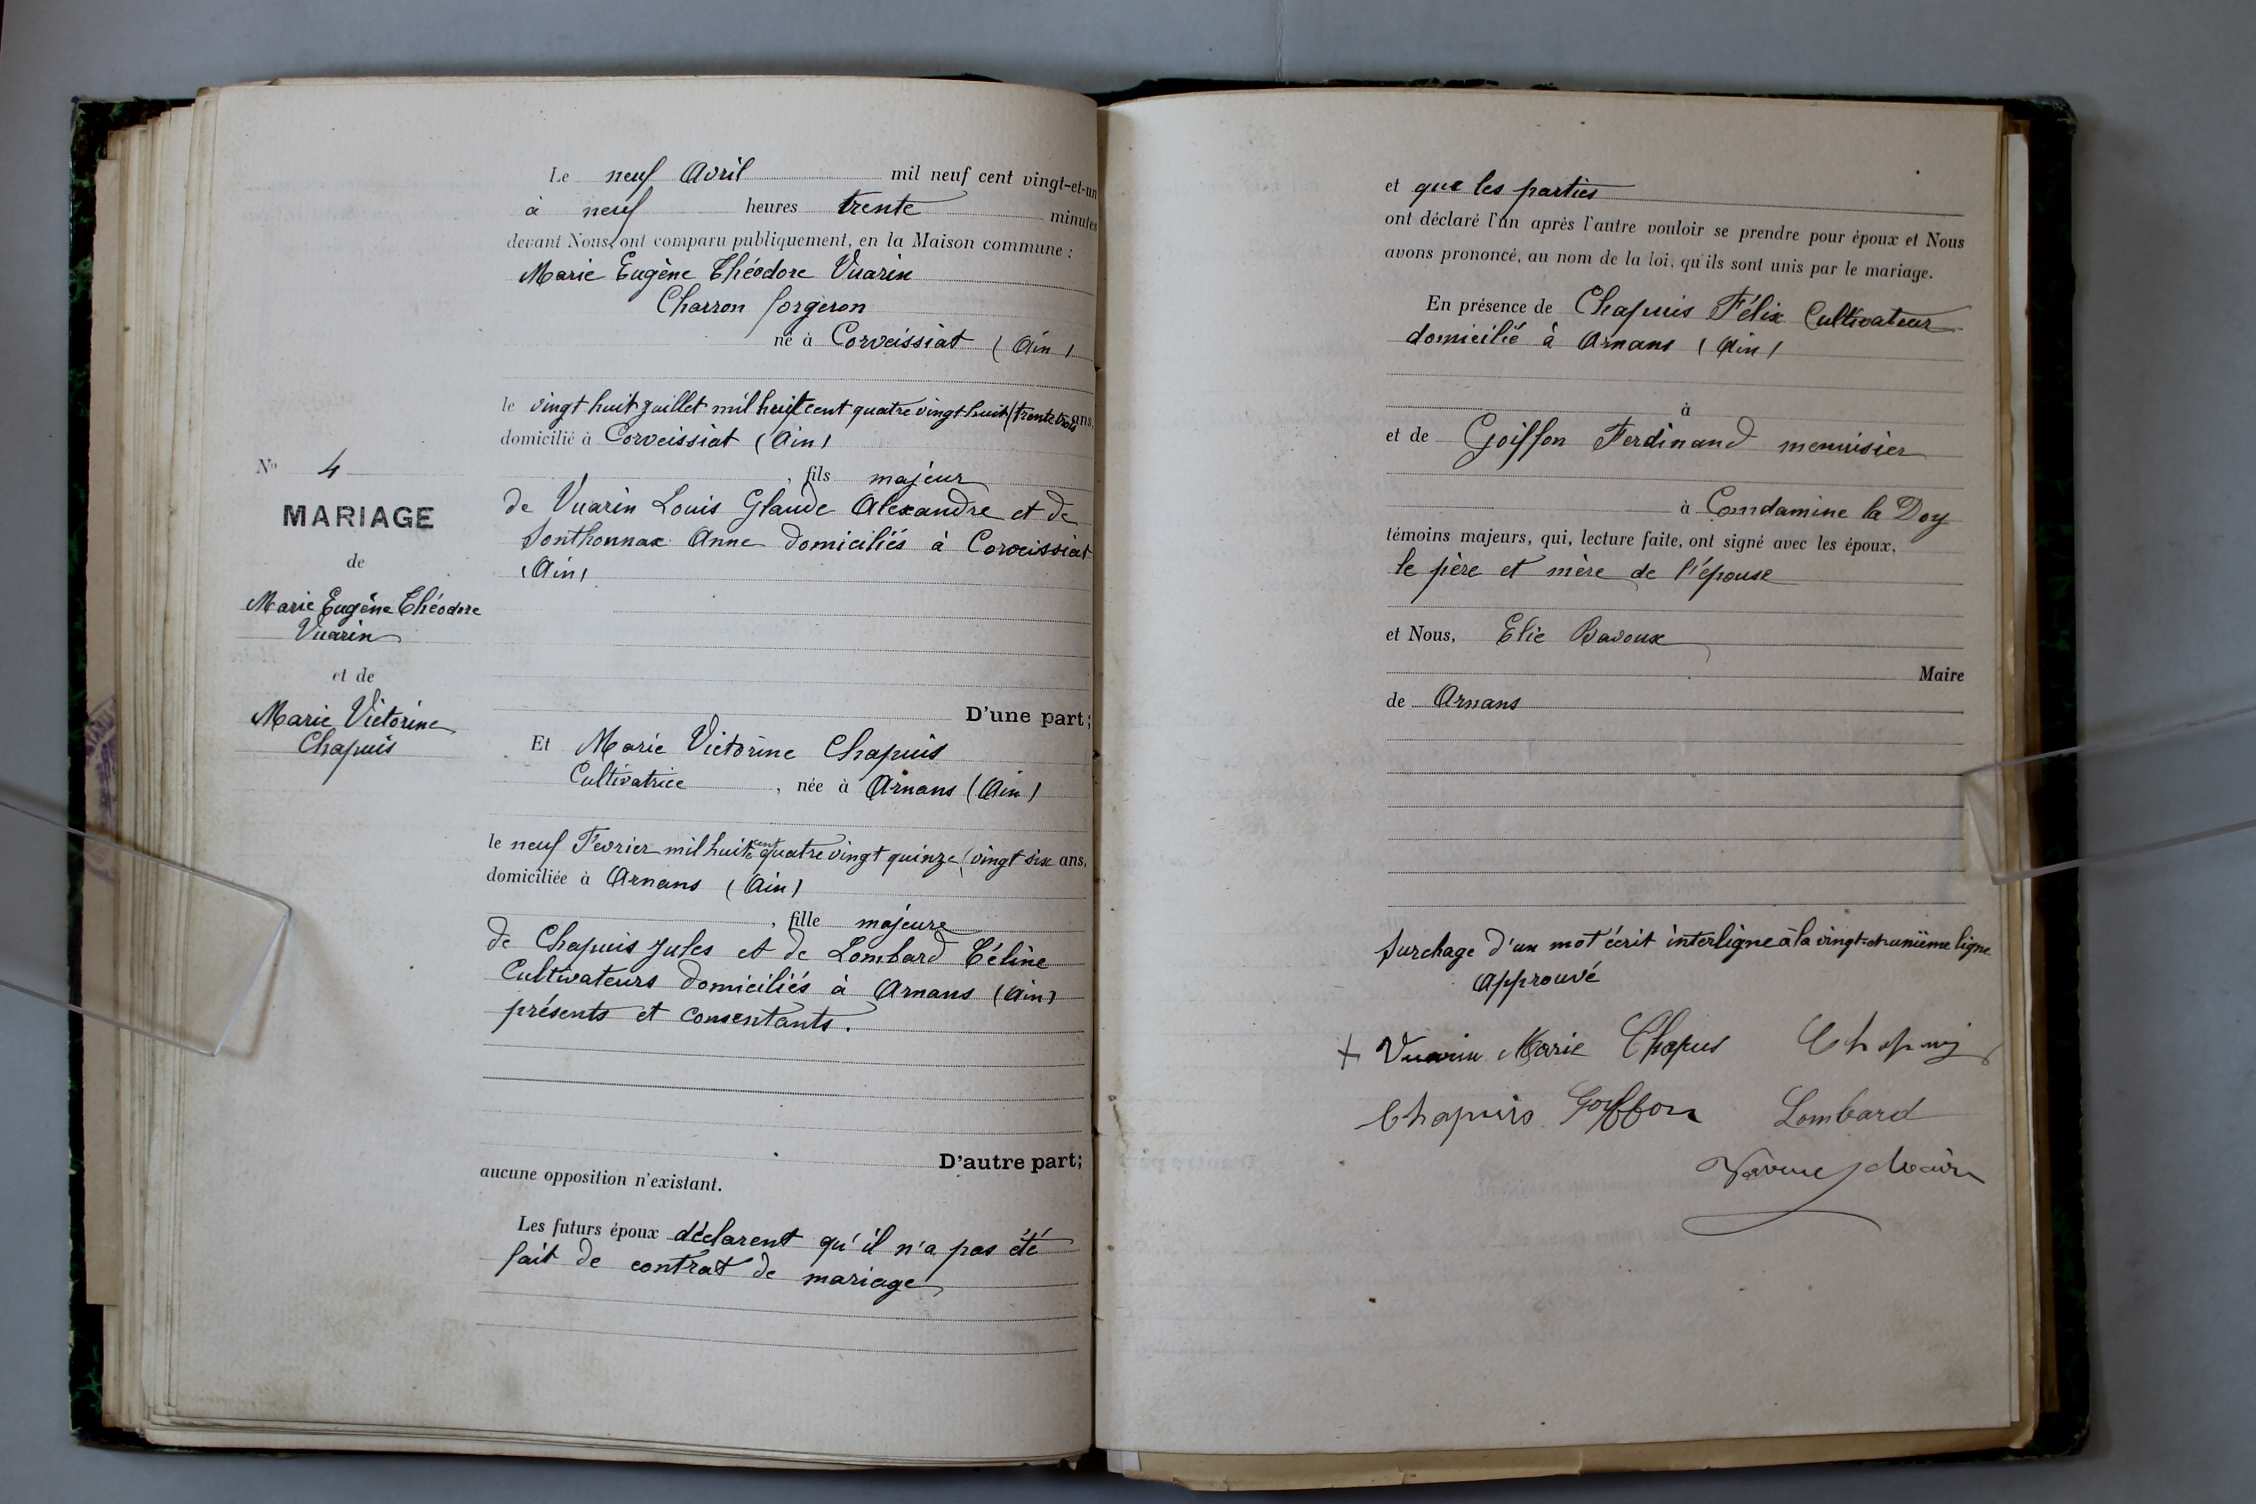 Le neuf Avril mil neuf cent vingt-et-un
à neuf heures trente minutes
devant Nous, ont comparu publiquement, en la Maison commune :
Marie Eugène Théodore Vuarin
Charron forgeron
né à Corveissiat (Ain)
le vingt huit juillet mil huit cent quatre vingt huit (trente trois ans,
domicilié à Corveissiat (Ain)
, fils majeur
de Vuarin Louis Glaude Alexandre et de
Sonthonnax Anne domiciliés à Corveissiat
(Ain)
D'une part;
Et Marie Victorine Chapuis
Cultivatrice , née à Arnans (Ain)
le neuf Fevrier mil huit cent quatre vingt quinze (vingt six ans,
domiciliée à Arnans (Ain)
, fille majeure
de Chapuis Jules et de Lombard Céline
Cultivateurs domiciliés à Arnans (Ain)
présents et consentants.
D'autre part;
aucune opposition n'existant.
Les futurs époux déclarent qu'il n'a pas été
fait de contrat de mariage
No 4
MARIAGE
de
Marie Eugène Théodore
Vuarin
et de
Marie Victorine
Chapuis
et que les parties
ont déclaré l'un après l'autre vouloir se prendre pour époux et Nous
avons prononcé, au nom de la loi, qu'ils sont unis par le mariage.
En présence de Chapuis Félix Cultivateur
domicilié à Arnans (Ain)
à
et de Goiffon Ferdinand menuisier
à Condamine la Doy
témoins majeurs, qui, lecture faite, ont signé avec les époux,
le père et mère de l'épouse
et Nous, Elie Bavoux
Maire
de Arnans
Surchage d'un mot écrit interligne à la vingt-et-unième ligne
Approuvé
Vuarin Marie Chapus Chapuis
Chapuis Goiffon Lombard